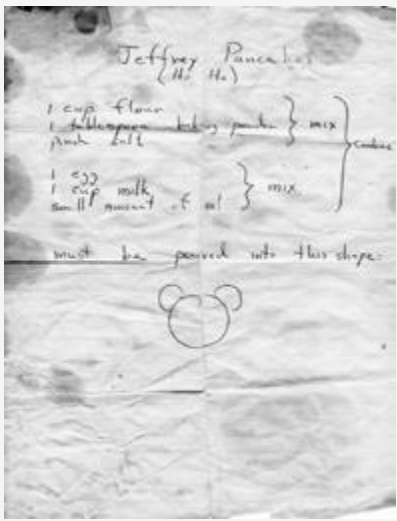 Jeffrey Pancakes
(Ho Ho)
1 cup flour
1 tablespoon baking powder } mix
pinch salt
combine
1 egg
1 cup milk } mix
small amount of oil
must be poured into this shape: